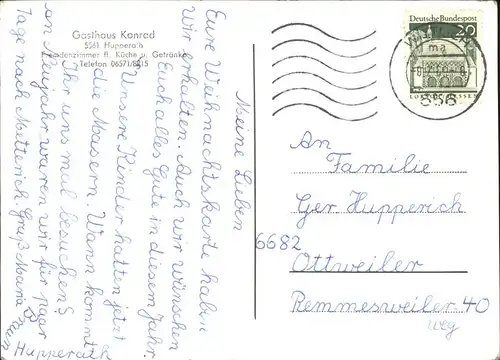 Gasthaus Konrad
5561 Hupperath
Fremdenzimmer fl. Küche u. Getränke
Telefon 06571/8415
Meine Lieben
Eure Weihnachtskarte haben
Wir erhalten. Auch wir wünschen
Euch alles Gute in diesem Jahr.
Unsere Kinder hatten jetzt
die Masern. Wann kommt
Ihr uns mal besuchen?
An Neujahr waren wir für paar
Tage nach Mutterich. Gruß Maria
Hupperath
Deutsche Bundespost
20
556
An
Familie
Ger Hupperich
6682
Ottweiler
Remmesweiler 40
weg